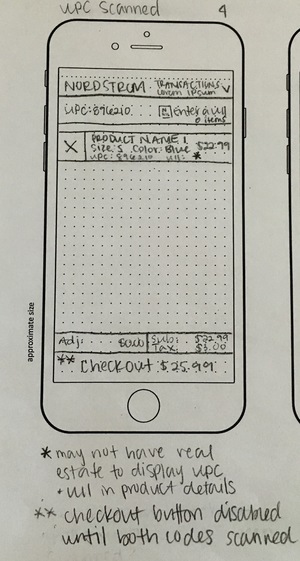 UPC Scanned 4
NORDSTROM TRANSACTIONS
Lorem Ipsum
UPC: 896210 Enter a UII
0 items
X PRODUCT NAME 1
Size: S Color: Blue $22.99
UPC: 896210 UII: *
Adj: $0.00 Sub: $22.99
Tax: $3.00
** Checkout $25.99
approximate size
* may not have real
estate to display UPC
+ UII in product details
** checkout button disabled
until both codes scanned